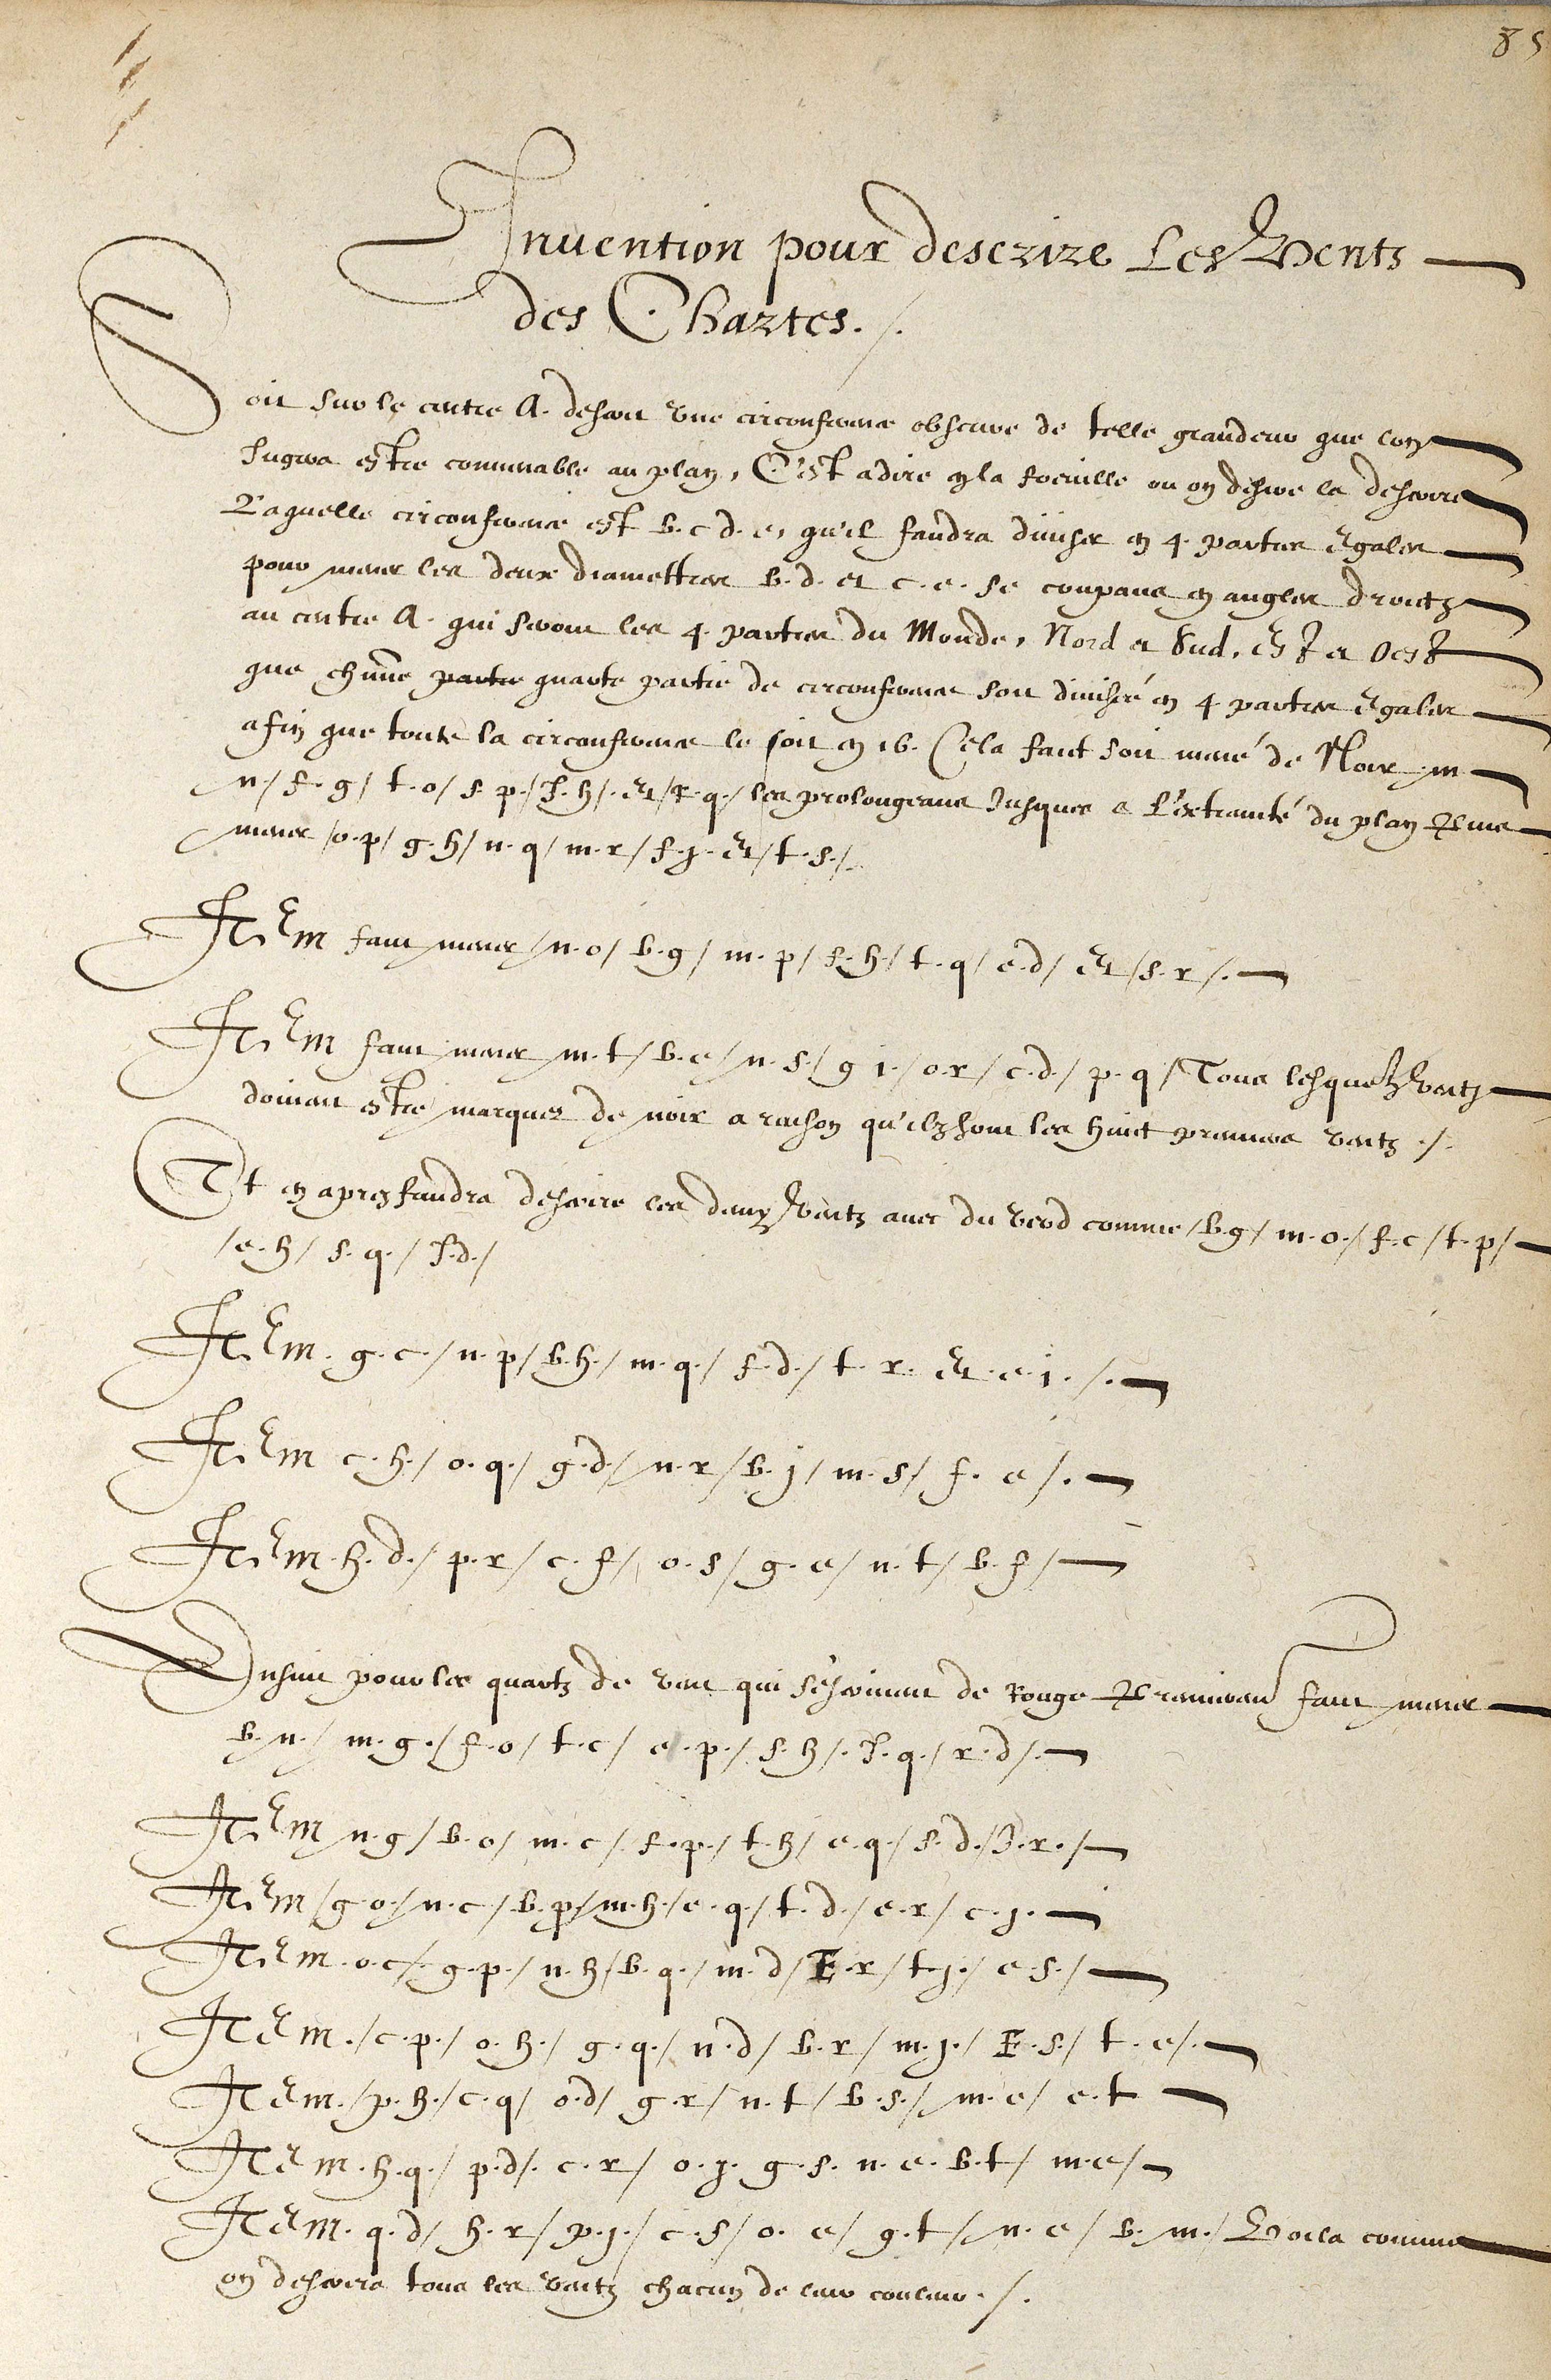 85
Invention pour descrire Les Vents
des Chartes ./.
Soit sur le centre A. descrit une circonference obscure de telle grandeur que lon
Jugera estre convenable au plan, C'est a dire en la foeuille ou on desire la descrire
Laquelle circonference est b. c d. e, qu'il faudra diviser en 4. parties Egales
pour mener les deux diamettres b. d. et c. e. se coupans en angles droictz
au centre A. qui seront les 4. parties du Monde, Nord et Sud, Est et Oest
que chune partie quarte partie de circonference soit divisée en 4. parties Egales
afin que toute la circonference le soit en 16. Cela faict soit mené de Noir m
n / f. g / t. o / s p. / J. h /. et / r. q. / les prolongeans Jusques a l'extremité du plan
mener / o. p / g. h / n. q / m. r / f. j. et / t. s. /.
Item faut mener / n. o / b. g / m. p / f. h / t. q / e. d / et / s. r /.
Item faut mener m. t / b. e / n. s. / g j. / o. r / c. d. / p. q / Tous lesquelz ventz
doivent estre marques de noir a raison qu'ilz sont les huict premiers ventz ./.
Et en apres faudra descrire les demy ventz avec du verd comme / b. g / m. o. / f. c / t. p /
/ e. h / s. q. / J. d. /
Item. g. c. / n. p / b. h. / m. q. / f. d. / t. r. et. e j. /.
Item c. h. / o. q. / g. d / n. r / b. j / m. s / f. e /.
Item. h. d. / p. r / c. f / o. s / g. e / n. t / b. f /
Ensuit pour les quartz de vent qui s'escrivent de Rouge Premierem faut mener
b. n. / m. g. / f. o / t. c / e. p. / s. h /. J. q. / r. d /.
Item n. g / b. o / m. c /. f. p. / t. h / e. q. / s. d. / J. r. /
Item / g. o / n. c. / b. p / m. h. / e. q. / t. d. / e. r / c. j.
Item. o. c /. g. p. / n. h / b. q. / m. d / F. r / t. j. / e. s. /
Item. / c. p. / o. h. / g. q. / n. d / b. r / m. j. / F. s. / t. e /.
Item. / p. h. / c. q / o. d / g. r / n. t / b. s. / m. e / e. t
Item. h. q. / p. d /. c. r / o. j. g. s. n. e. b. t / m. e /
Item. q. d / h. r / p. j. / c. s / o. e / g. t / n. e / b. m. / Voila comme
on descrira tous les ventz chacun de leur couleur ./.